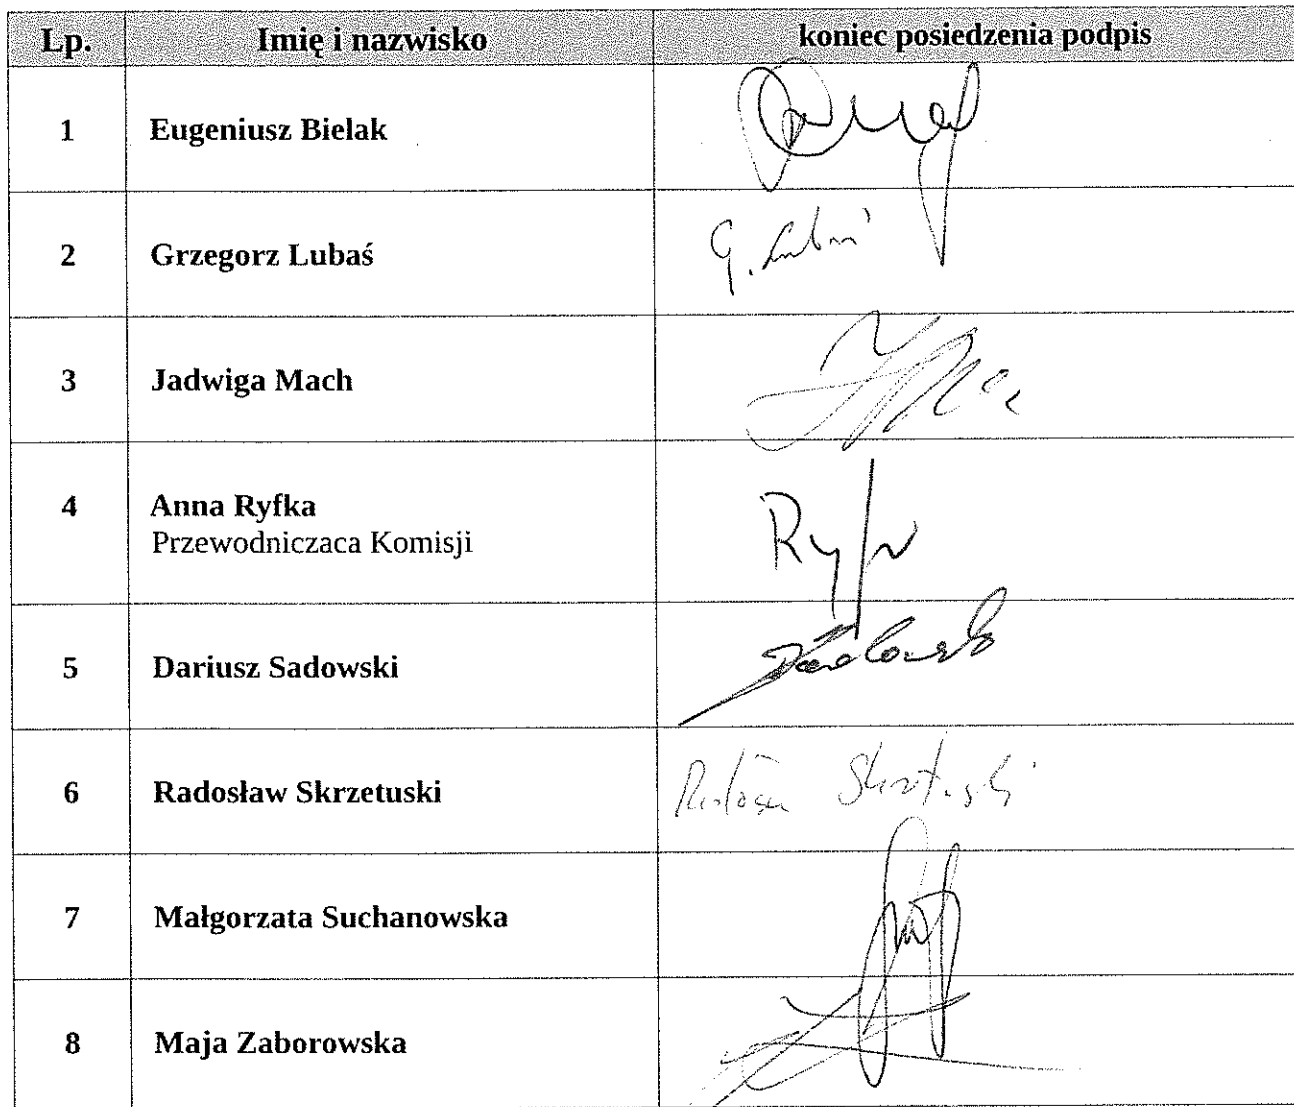 Lp. Imię i nazwisko koniec posiedzenia podpis
1 Eugeniusz Bielak
2 Grzegorz Lubaś G. Lubaś
3 Jadwiga Mach
4 Anna Ryfka
Przewodniczaca Komisji
5 Dariusz Sadowski
6 Radosław Skrzetuski
7 Małgorzata Suchanowska
8 Maja Zaborowska